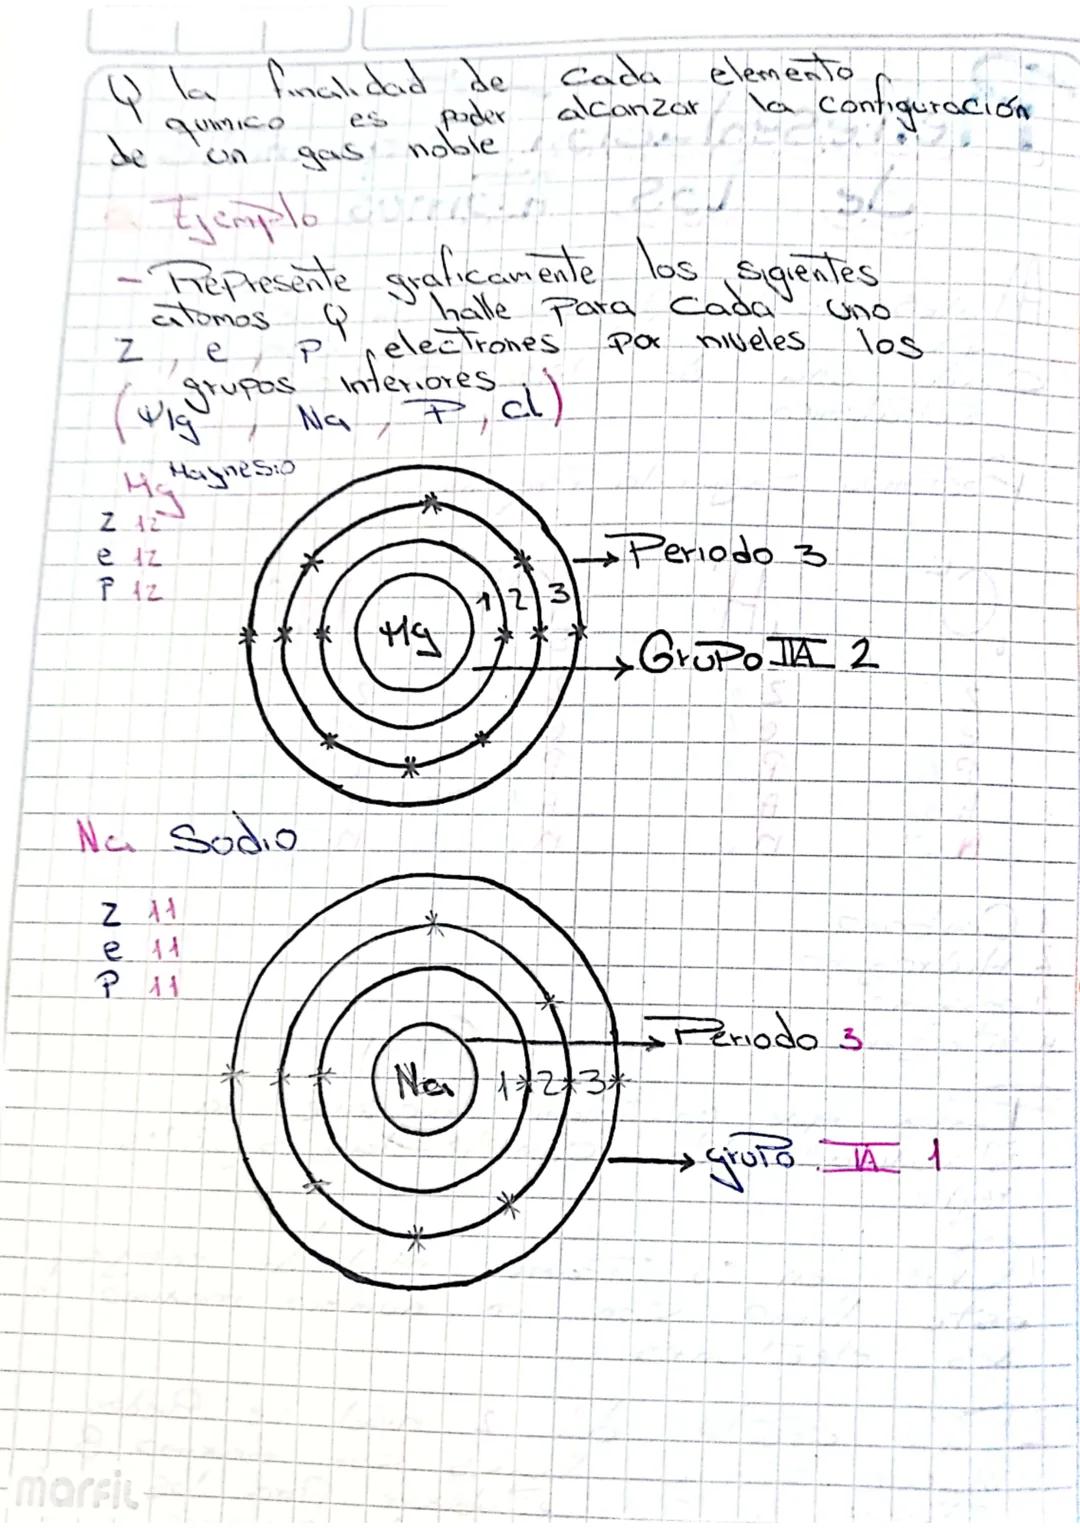 y la finalidad de cada elemento
quimico es poder alcanzar la configuración
de un gas noble
Ejemplo
- Represente graficamente los sigientes
atomos y halle Para Cada uno
Z, e, P, electrones por niveles los
grupos inferiores
(Mg, Na, P, cl)
Mg Magnesio
Z 12
e 12
P 12
Mg 1 2 3
→ Periodo 3
→ Grupo IIA 2
Na Sodio
Z 11
e 11
P 11
Na 1 2 3
→ Periodo 3
→ grupo IA 1
marfil